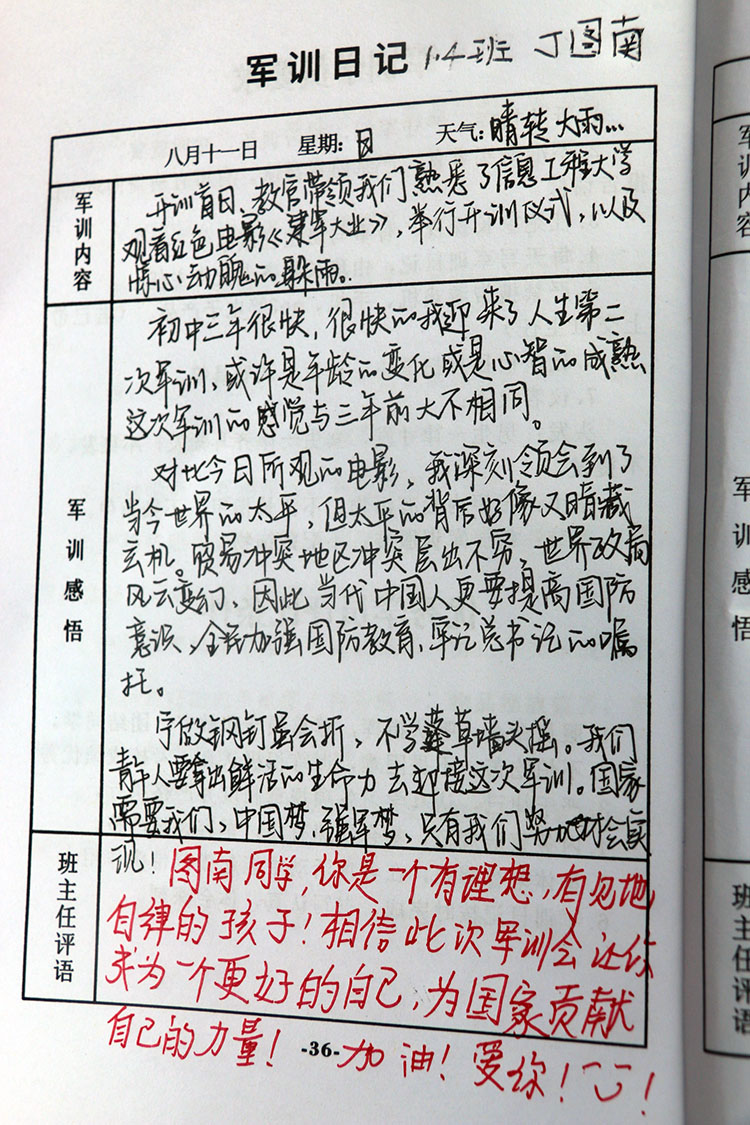 军训日记 1.4班 丁图南
八月十一日 星期:日 天气:晴转大雨...
军训内容
开训首日、教官带领我们熟悉了信息工程大学
观看红色电影《建军大业》,举行开训仪式,以及
惊心动魄的躲雨。
军训感悟
初中三年很快,很快的我迎来了人生第二
次军训,或许是年龄的变化或是心智的成熟
这次军训的感觉与三年前大不相同。
对比今日所观的电影,我深刻领会到了
当今世界的太平,但太平的背后好像又暗藏
玄机。贸易冲突地区冲突层出不穷、世界政局
风云变幻、因此当代中国人更要提高国防
意识、全民加强国防教育,牢记总书记的嘱
托。
宁做钢钉虽会折,不学蓬草墙头摇。我们
青年人要拿出鲜活的生命力去迎接这次军训。国家
需要我们,中国梦,强军梦,只有我们努力才会实
现!
班主任评语
图南同学,你是一个有理想,有见地
自律的孩子!相信此次军训会让你
成为一个更好的自己,为国家贡献
自己的力量!
加油!爱你!!
-36-
军训内容
军训感悟
班主任评语